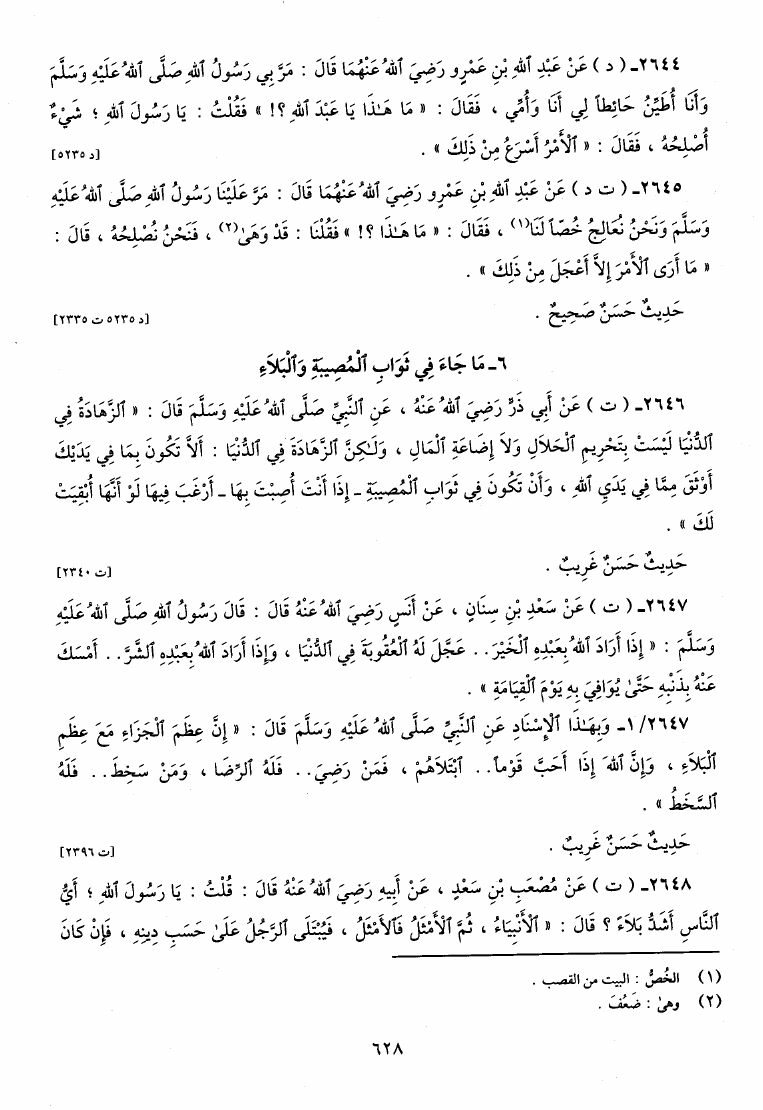 ٢٦٤٤ـ ( د ) عَنْ عَبْدِ ٱللهِ بْنِ عَمْرٍو رَضِيَ ٱللهُ عَنْهُمَا قَالَ : مَرَّ بِي رَسُولُ ٱللهِ صَلَّى ٱللهُ عَلَيْهِ وَسَلَّمَ
وَأَنَا أُطَيِّنُ حَائِطاً لِي أَنَا وَأُمِّي ، فَقَالَ : « مَا هَـٰذَا يَا عَبْدَ ٱللهِ ؟! » فَقُلْتُ : يَا رَسُولَ ٱللهِ ؛ شَيْءٌ
أُصْلِحُهُ ، فَقَالَ : « ٱلْأَمْرُ أَسْرَعُ مِنْ ذَلِكَ » . [د ٥٢٣٥]
٢٦٤٥ـ ( ت د ) عَنْ عَبْدِ ٱللهِ بْنِ عَمْرٍو رَضِيَ ٱللهُ عَنْهُمَا قَالَ : مَرَّ عَلَيْنَا رَسُولُ ٱللهِ صَلَّى ٱللهُ عَلَيْهِ
وَسَلَّمَ وَنَحْنُ نُعَالِجُ خُصّاً لَنَا(١) ، فَقَالَ : « مَا هَـٰذَا ؟! » فَقُلْنَا : قَدْ وَهَىٰ(٢) ، فَنَحْنُ نُصْلِحُهُ ، قَالَ :
« مَا أَرَى ٱلْأَمْرَ إِلاَّ أَعْجَلَ مِنْ ذَلِكَ » .
حَدِيثٌ حَسَنٌ صَحِيحٌ . [د ٥٢٣٥ ت ٢٣٣٥]
٦ـ مَا جَاءَ فِي ثَوَابِ ٱلْمُصِيبَةِ وَٱلْبَلاَءِ
٢٦٤٦ـ ( ت ) عَنْ أَبِي ذَرٍّ رَضِيَ ٱللهُ عَنْهُ ، عَنِ ٱلنَّبِيِّ صَلَّى ٱللهُ عَلَيْهِ وَسَلَّمَ قَالَ : « ٱلزَّهَادَةُ فِي
ٱلدُّنْيَا لَيْسَتْ بِتَحْرِيمِ ٱلْحَلاَلِ وَلاَ إِضَاعَةِ ٱلْمَالِ ، وَلَـٰكِنَّ ٱلزَّهَادَةَ فِي ٱلدُّنْيَا : أَلاَّ تَكُونَ بِمَا فِي يَدَيْكَ
أَوْثَقَ مِمَّا فِي يَدَيِ ٱللهِ ، وَأَنْ تَكُونَ فِي ثَوَابِ ٱلْمُصِيبَةِ ـ إِذَا أَنْتَ أُصِبْتَ بِهَا ـ أَرْغَبَ فِيهَا لَوْ أَنَّهَا أُبْقِيَتْ
لَكَ » .
حَدِيثٌ حَسَنٌ غَرِيبٌ . [ت ٢٣٤٠]
٢٦٤٧ـ ( ت ) عَنْ سَعْدِ بْنِ سِنَانٍ ، عَنْ أَنَسٍ رَضِيَ ٱللهُ عَنْهُ قَالَ : قَالَ رَسُولُ ٱللهِ صَلَّى ٱللهُ عَلَيْهِ
وَسَلَّمَ : « إِذَا أَرَادَ ٱللهُ بِعَبْدِهِ ٱلْخَيْرَ . . عَجَّلَ لَهُ ٱلْعُقُوبَةَ فِي ٱلدُّنْيَا ، وَإِذَا أَرَادَ ٱللهُ بِعَبْدِهِ ٱلشَّرَّ . . أَمْسَكَ
عَنْهُ بِذَنْبِهِ حَتَّىٰ يُوَافِيَ بِهِ يَوْمَ ٱلْقِيَامَةِ » .
٢٦٤٧/ ١ـ وَبِهَـٰذَا ٱلْإِسْنَادِ عَنِ ٱلنَّبِيِّ صَلَّى ٱللهُ عَلَيْهِ وَسَلَّمَ قَالَ : « إِنَّ عِظَمَ ٱلْجَزَاءِ مَعَ عِظَمِ
ٱلْبَلاَءِ ، وَإِنَّ ٱللهَ إِذَا أَحَبَّ قَوْماً . . ٱبْتَلاَهُمْ ، فَمَنْ رَضِيَ . . فَلَهُ ٱلرِّضَا ، وَمَنْ سَخِطَ . . فَلَهُ
ٱلسَّخَطُ » .
حَدِيثٌ حَسَنٌ غَرِيبٌ . [ت ٢٣٩٦]
٢٦٤٨ـ ( ت ) عَنْ مُصْعَبِ بْنِ سَعْدٍ ، عَنْ أَبِيهِ رَضِيَ ٱللهُ عَنْهُ قَالَ : قُلْتُ : يَا رَسُولَ ٱللهِ ؛ أَيُّ
ٱلنَّاسِ أَشَدُّ بَلاَءً ؟ قَالَ : « ٱلْأَنْبِيَاءُ ، ثُمَّ ٱلْأَمْثَلُ فَٱلْأَمْثَلُ ، فَيُبْتَلَى ٱلرَّجُلُ عَلَىٰ حَسَبِ دِينِهِ ، فَإِنْ كَانَ
(١) الخُصُّ : البيت من القصب .
(٢) وهىٰ : ضَعُفَ .
٦٢٨